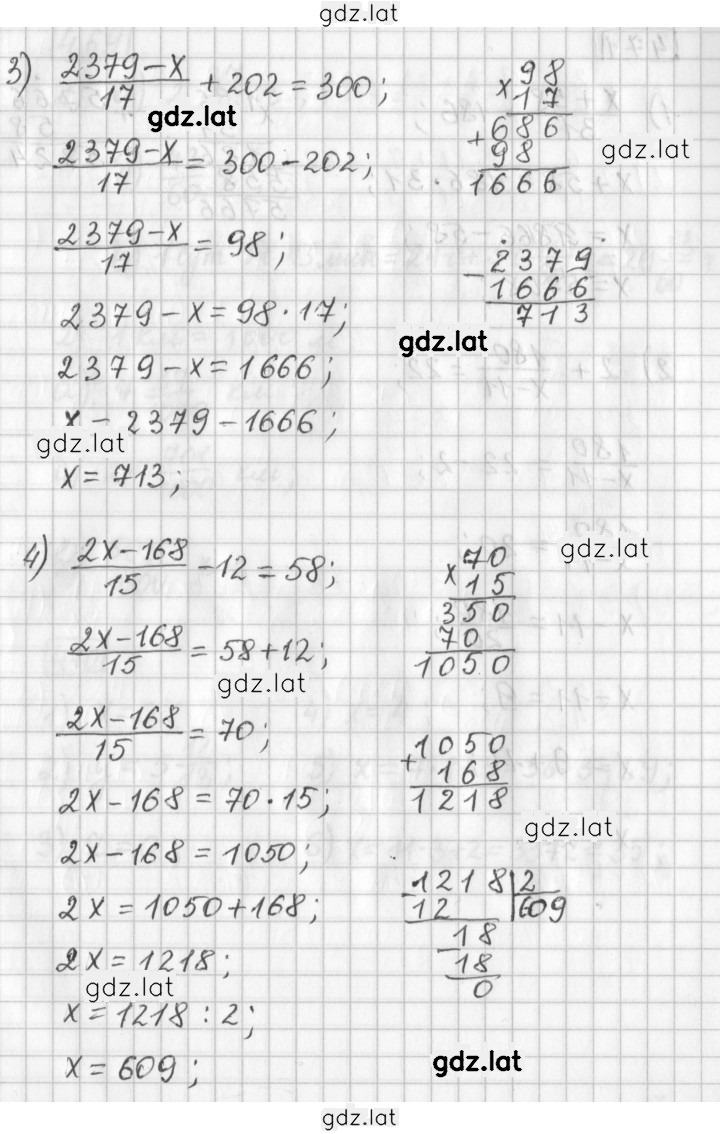 gdz.lat
3) (2379-x)/17 + 202 = 300;
gdz.lat
(2379-x)/17 = 300-202;
(2379-x)/17 = 98;
2379-x = 98·17;
2379-x = 1666;
x = 2379-1666;
gdz.lat
x = 713;
98
×17
686
+98
gdz.lat
1666
2379
-1666
713
gdz.lat
4) (2x-168)/15 -12 = 58;
(2x-168)/15 = 58+12;
gdz.lat
(2x-168)/15 = 70;
2x-168 = 70·15;
2x-168 = 1050;
2x = 1050+168;
2x = 1218;
gdz.lat
x = 1218 : 2;
x = 609;
gdz.lat
70
×15
350
70
1050
1050
+168
1218
gdz.lat
1218|2
-12 609
18
-18
0
gdz.lat
gdz.lat